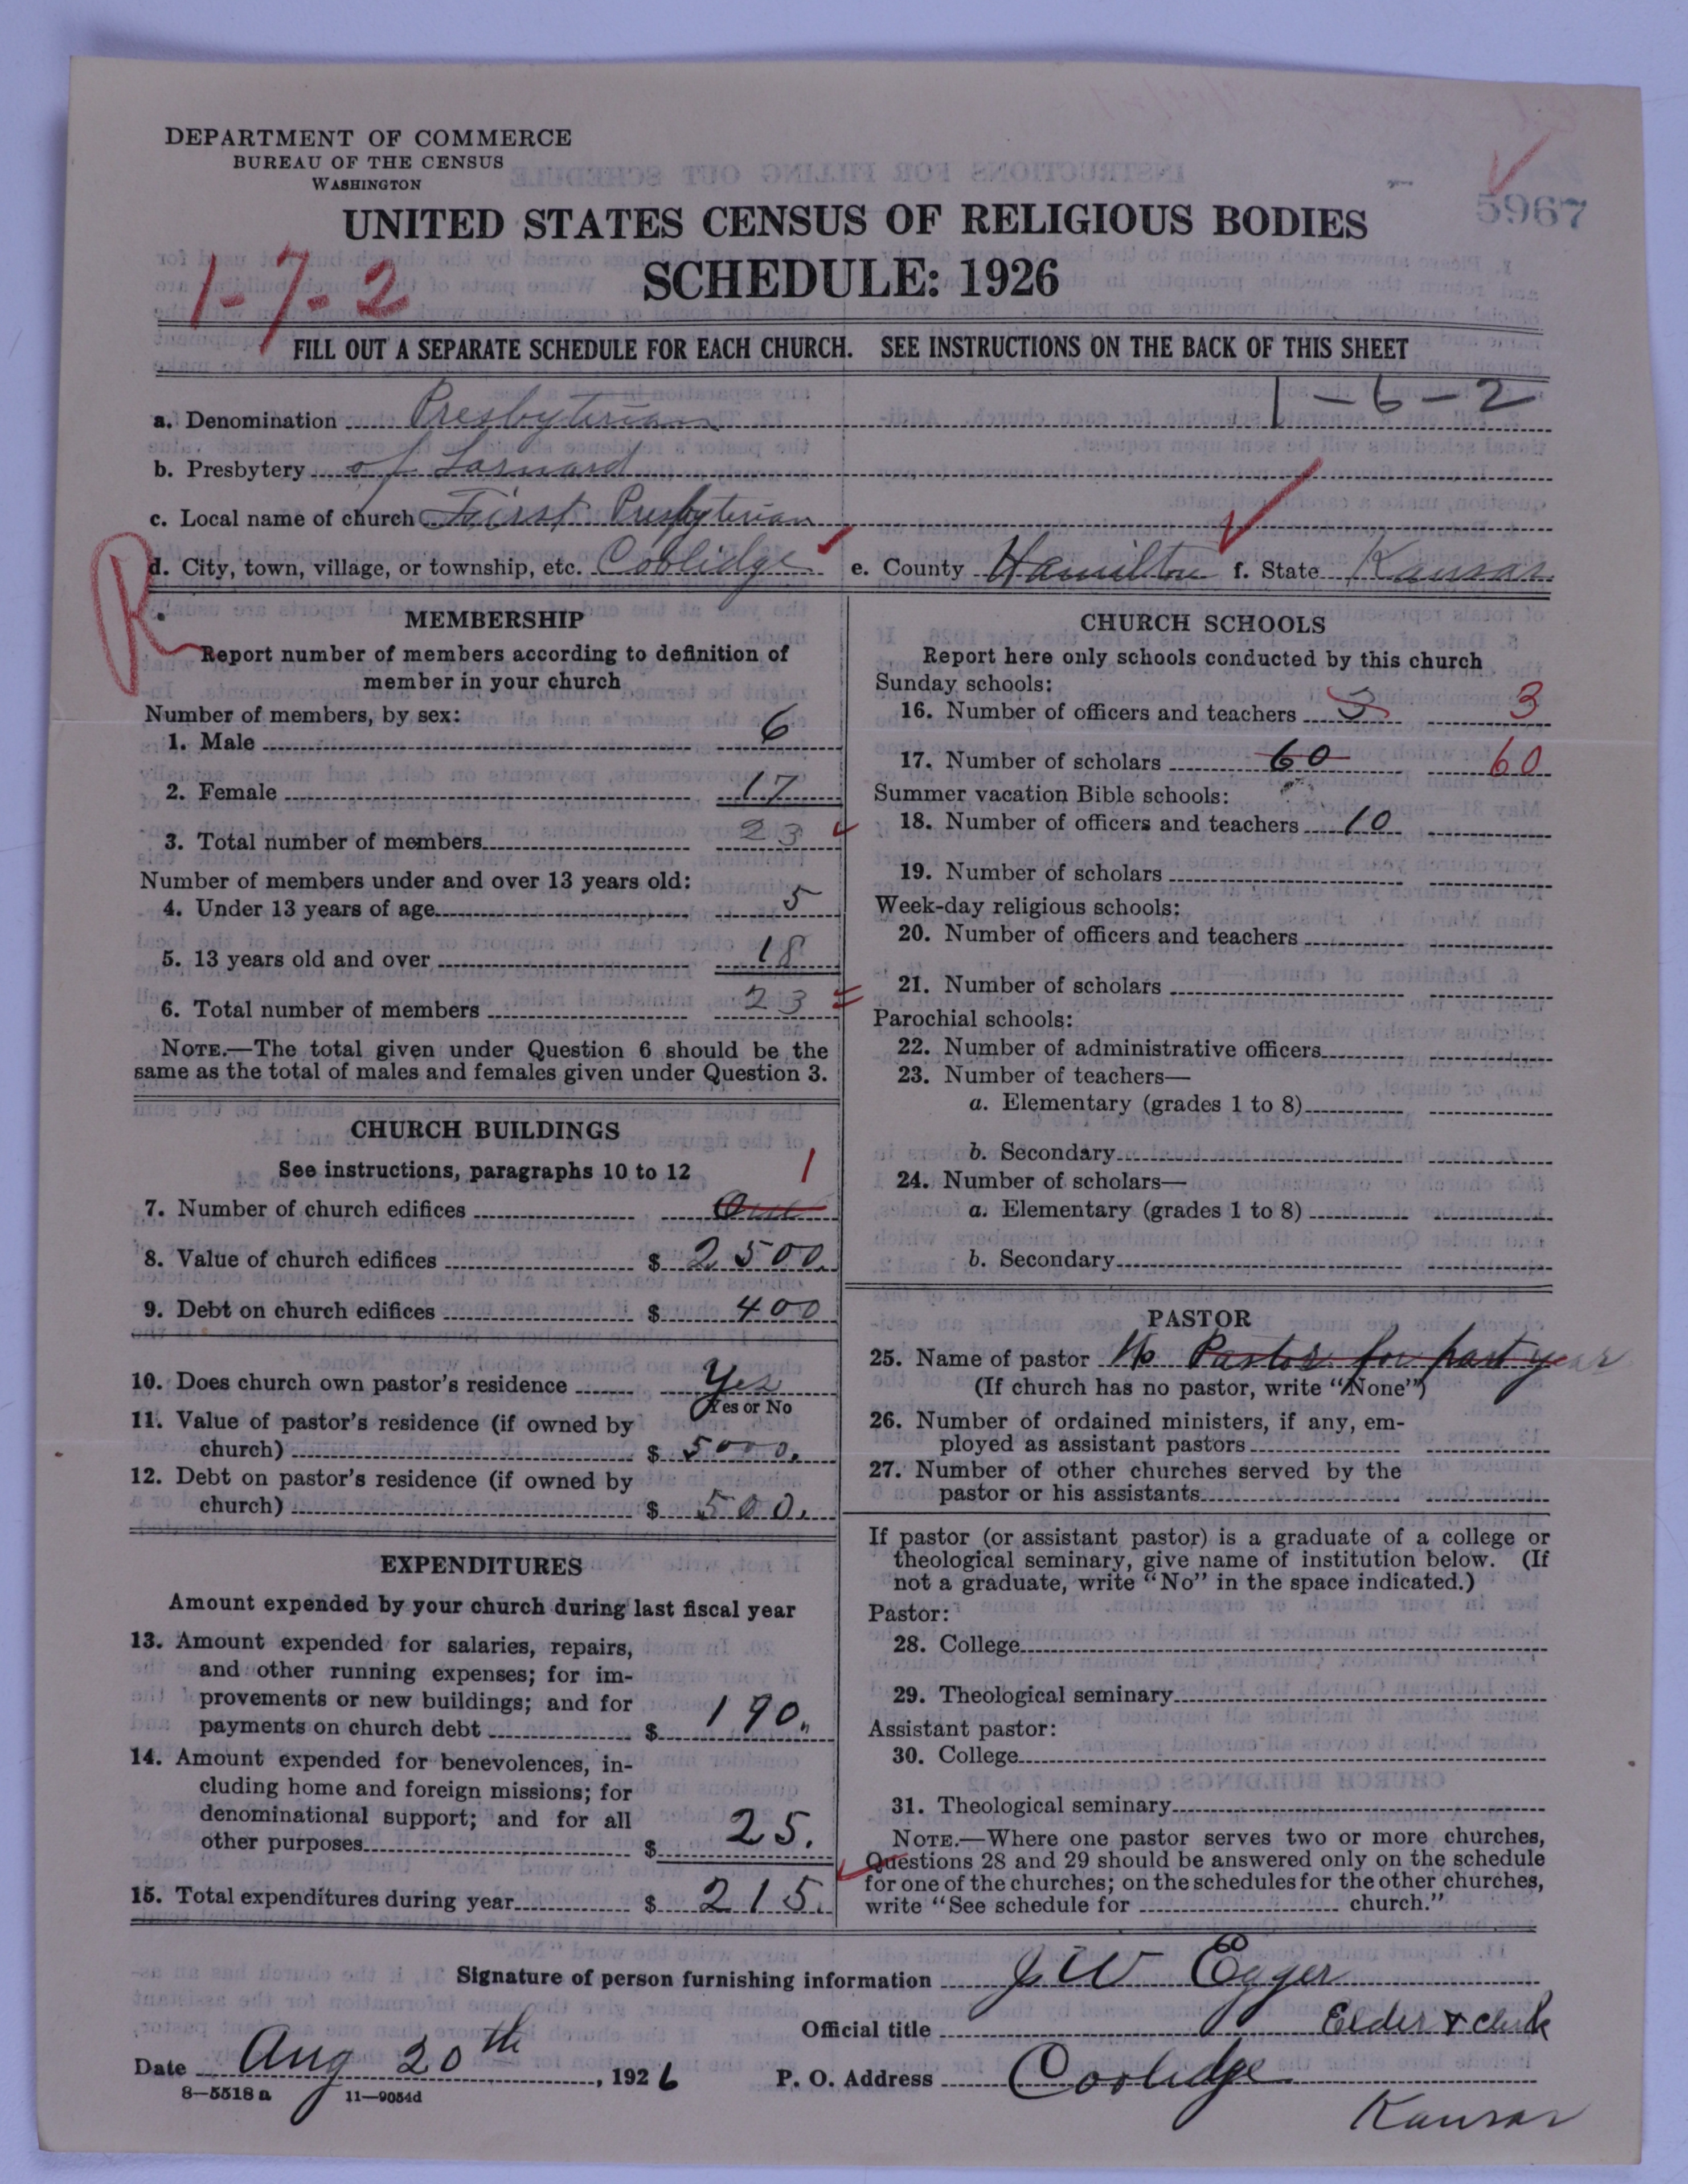 DEPARTMENT OF COMMERCE
BUREAU OF THE CENSUS
WASHINGTON
5967
UNITED STATES CENSUS OF RELIGIOUS BODIES
SCHEDULE: 1926
1-7-2
FILL OUT A SEPARATE SCHEDULE FOR EACH CHURCH. SEE INSTRUCTIONS ON THE BACK OF THIS SHEET
1-6-2
a. Denomination Presbyterian
b. Presbytery of Larnard
c. Local name of church First Presbyterian
d. City, town, village, or township, etc. Coolidge e. County Hamilton f. State Kansas
R
MEMBERSHIP
Report number of members according to definition of
member in your church
Number of members, by sex:
1. Male 6
2. Female 17
3. Total number of members 23
Number of members under and over 13 years old:
4. Under 13 years of age 5
5. 13 years old and over 18
6. Total number of members 23
NOTE.—The total given under Question 6 should be the
same as the total of males and females given under Question 3.
CHURCH BUILDINGS
See instructions, paragraphs 10 to 12
1
7. Number of church edifices One
8. Value of church edifices $ 2500.
9. Debt on church edifices $ 400
10. Does church own pastor's residence Yes
Yes or No
11. Value of pastor's residence (if owned by
church) $ 5000.
12. Debt on pastor's residence (if owned by
church) $ 500.
EXPENDITURES
Amount expended by your church during last fiscal year
13. Amount expended for salaries, repairs,
and other running expenses; for im-
provements or new buildings; and for
payments on church debt $ 190.
14. Amount expended for benevolences, in-
cluding home and foreign missions; for
denominational support; and for all
other purposes $ 25.
15. Total expenditures during year $ 215.
CHURCH SCHOOLS
Report here only schools conducted by this church
Sunday schools:
16. Number of officers and teachers 3 3
17. Number of scholars 60 60
Summer vacation Bible schools:
18. Number of officers and teachers 10
19. Number of scholars
Week-day religious schools:
20. Number of officers and teachers
21. Number of scholars
Parochial schools:
22. Number of administrative officers
23. Number of teachers—
a. Elementary (grades 1 to 8)
b. Secondary
24. Number of scholars—
a. Elementary (grades 1 to 8)
b. Secondary
PASTOR
25. Name of pastor No Pastor for part year
(If church has no pastor, write "None")
26. Number of ordained ministers, if any, em-
ployed as assistant pastors
27. Number of other churches served by the
pastor or his assistants
If pastor (or assistant pastor) is a graduate of a college or
theological seminary, give name of institution below. (If
not a graduate, write "No" in the space indicated.)
Pastor:
28. College
29. Theological seminary
Assistant pastor:
30. College
31. Theological seminary
NOTE.—Where one pastor serves two or more churches,
Questions 28 and 29 should be answered only on the schedule
for one of the churches; on the schedules for the other churches,
write "See schedule for church."
Signature of person furnishing information J W Egger
Official title Elder & Clerk
Date Aug 20th, 1926
P. O. Address Coolidge
Kansas
8—5518a 11—9054d